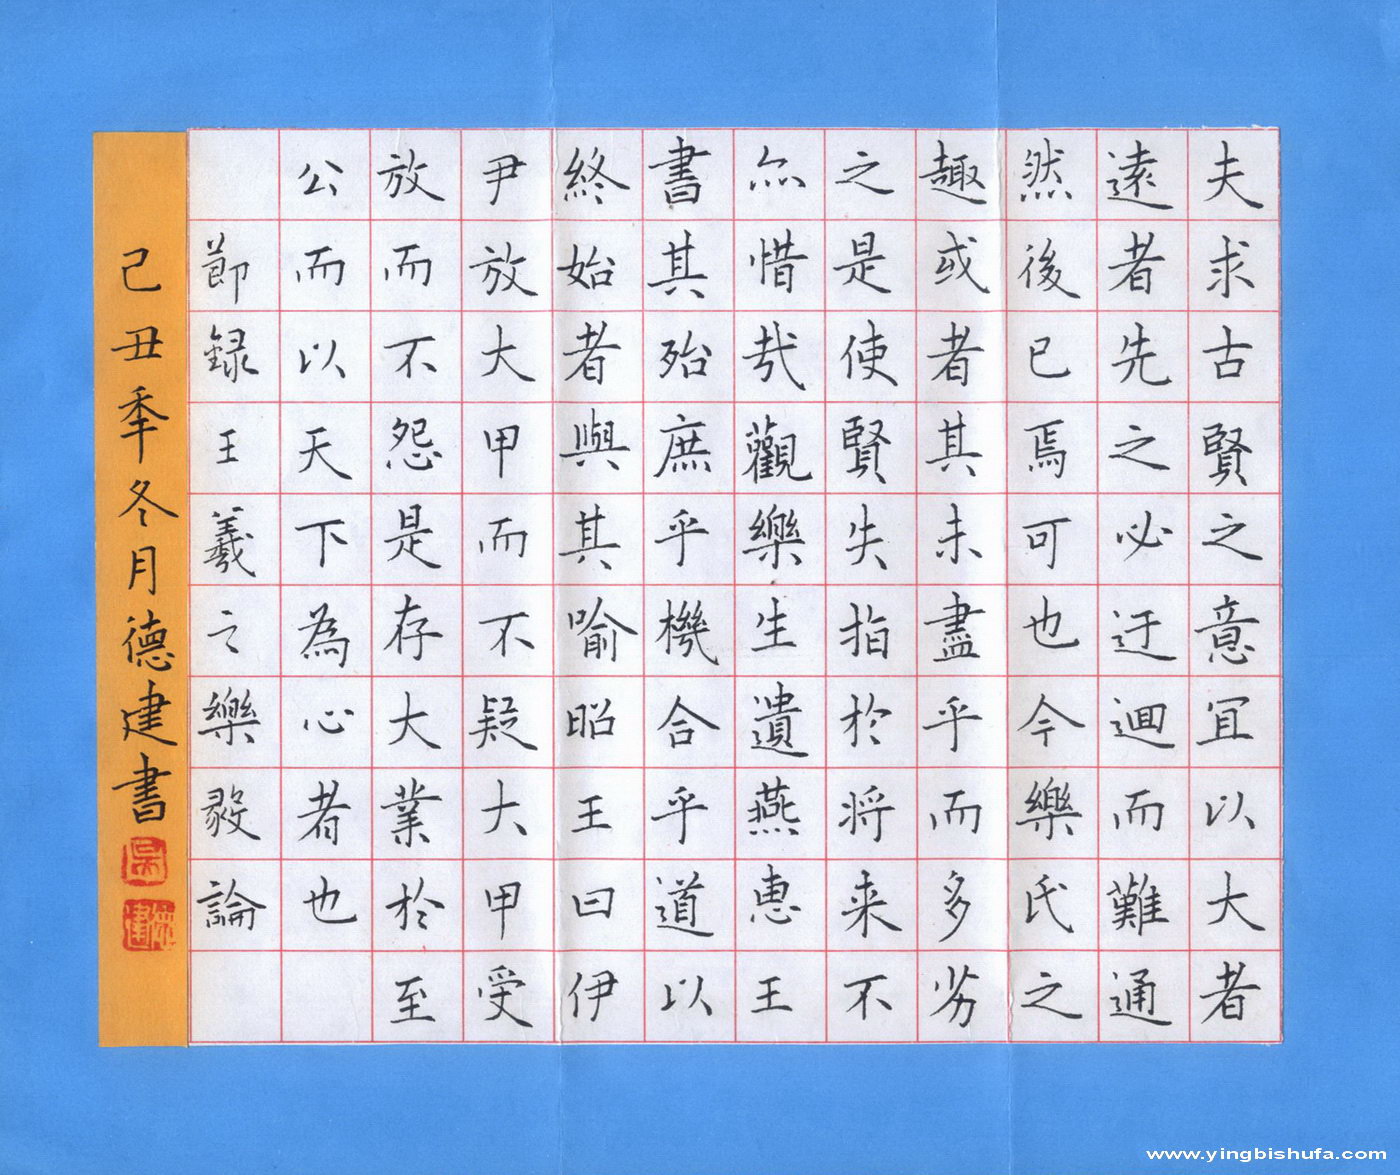 夫求古賢之意冝以大者
遠者先之必迂迴而難通
然後已焉可也今樂氏之
趣或者其未盡乎而多劣
之是使賢失指於将来不
亦惜哉觀樂生遺燕惠王
書其殆庶乎機合乎道以
終始者與其喻昭王曰伊
尹放大甲而不疑大甲受
放而不怨是存大業於至
公而以天下為心者也
節録王羲之樂毅論
己丑秊冬月德建書
www.yingbishufa.com